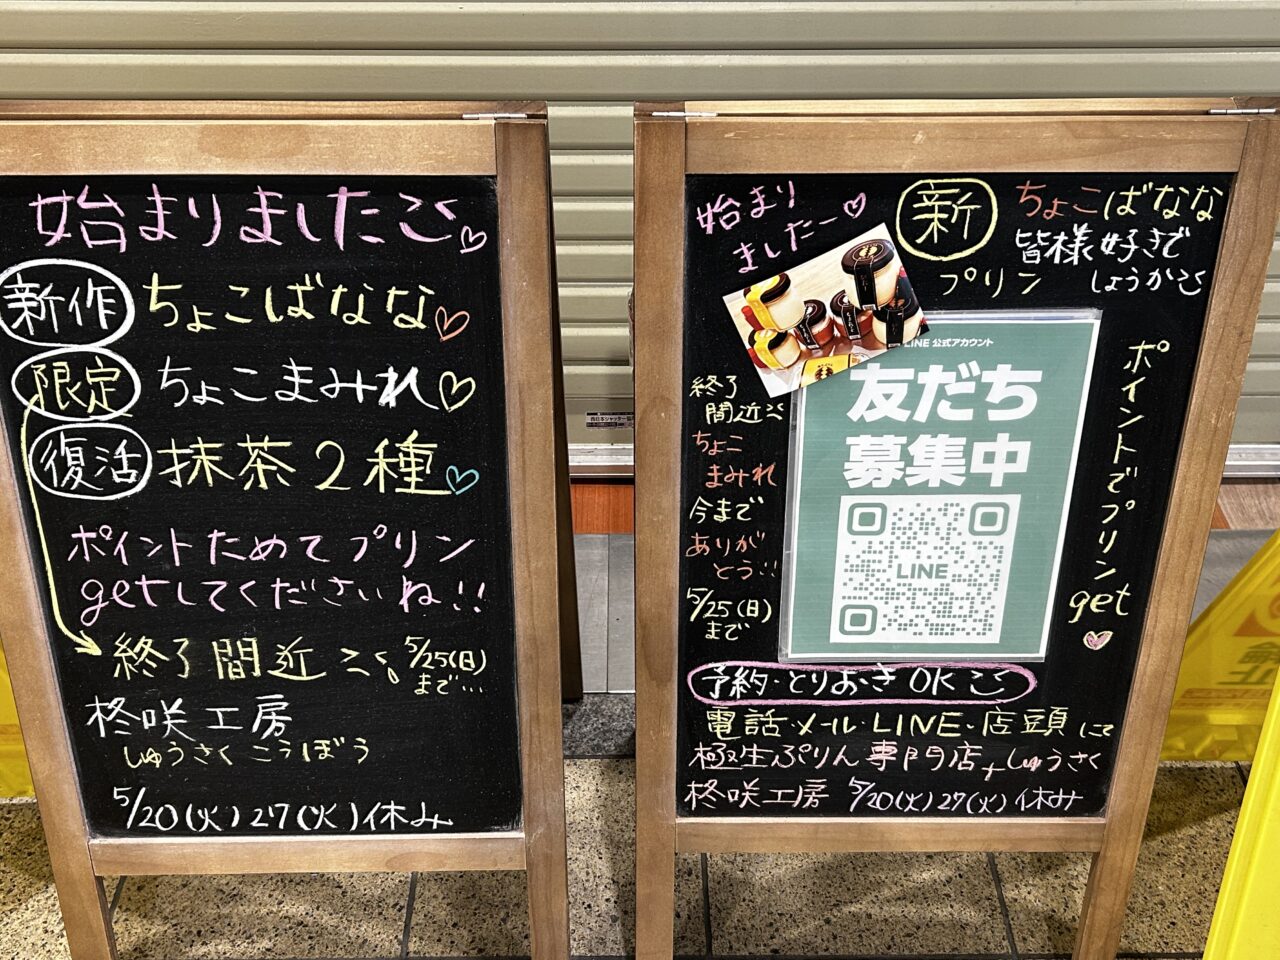 始まりました
新作 ちょこばなな
限定 ちょこまみれ
復活 抹茶2種
ポイントためてプリン
getしてくださいね!!
終了間近 5/25(日)
まで…
柊咲工房
しゅうさくこうぼう
5/20(火)27(火)休み
始まり
ましたー
新 ちょこばなな
プリン
皆様好きで
しょうか
終了
間近
ちょこ
まみれ
今まで
ありが
とう!!
5/25(日)
まで
LINE 公式アカウント
友だち
募集中
LINE
ポイントでプリン
get
予約・とりおきOK
電話・メール・LINE・店頭にて
極生ぷりん専門店 しゅうさく
柊咲工房 5/20(火)27(火)休み